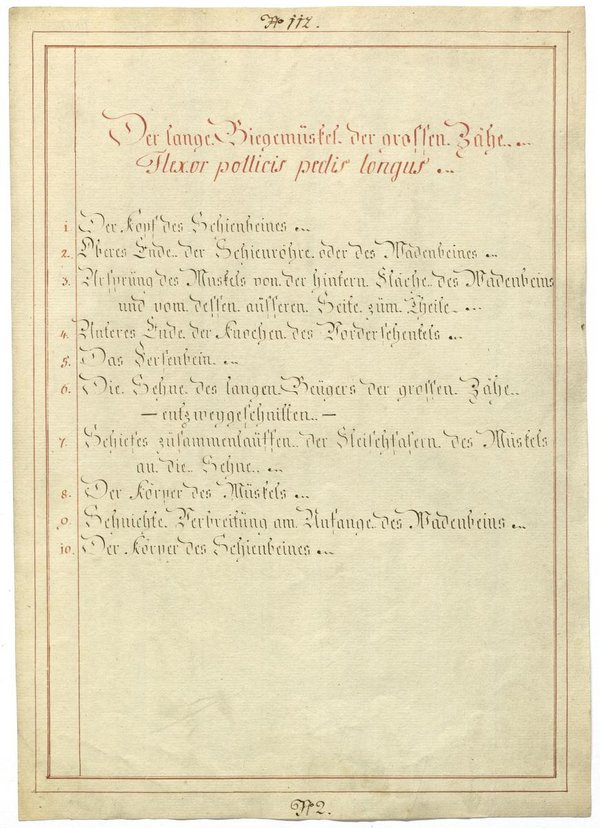 № 112.
Der lange Biegemüskel der grossen Zähe
Flexor pollicis pedis longus
1. Der Kopf des Schienbeines
2. Oberes Ende der Schienröhre oder des Wadenbeines
3. Ursprüng des Muskels von der hintern Fläche des Wadenbeins
und vom dessen äusseren Seite züm Theile
4. Unteres Ende der Knochen des Vorderschenkels
5. Das Fersenbein
6. Die Sehne des langen Beügers der grossen Zähe
— entzweygeschnitten —
7. Schiefes züsammenlauffen der Fleischfasern des Müskels
an die Sehne
8. Der Körper des Müskels
9. Sehnichte Verbreitüng am Anfange des Wadenbeins
10. Der Körper des Schienbeines
№ 2.